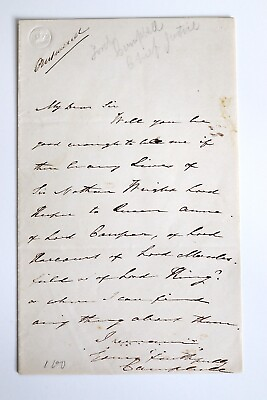 Answered
Lord Campbell
Chief Justice
My dear Sir
Will you be
good enough to tell me if
there be any Lives of
Sir Nathan Wright Lord
Keeper to Queen Anne,
of Lord Cowper, of Lord
Harcourt of Lord Maccles-
field or of Lord King?
or where I can find
any thing about them.
I remain
Yours faithfully
Campbell